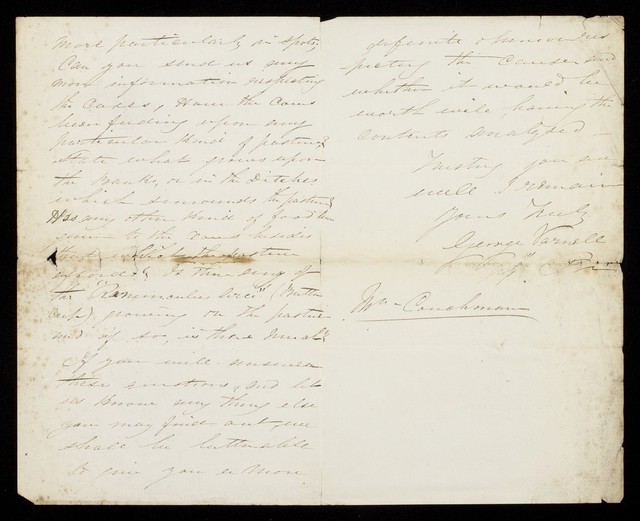 more particularly in spots,
Can you send us any
more information respecting
the Cases, Have the Cows
been feeding upon any
particular kind of pasture?
State what grows upon
the banks, or in the Ditches
which surrounds the pasture?
Has any other kind of food been
given to the Cows besides
that which the pasture
affords? Is there any of
the "Ranunculus acris" (Butter
Cup) growing on the pasture
and if so, is there much?
If you will answer
these questions, and let
us know any thing else
you may find out we
shall be better able
to give you a more
definite opinion res
pecting the Cause and
whether it would be
worth while having the
Contents analysed –
Trusting you are
well I remain
Yours Truly
George Varnell
Mr Couchman